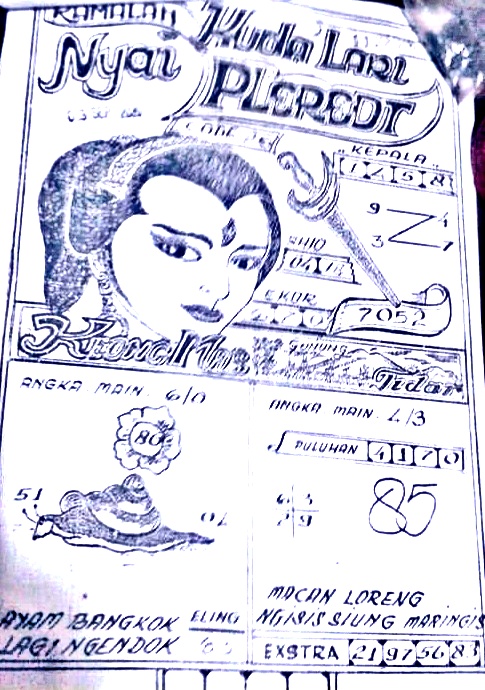 RAMALAN
Nyai
Kuda Lari
PLEREDT
CODE
"KEPALA"
1 2 5 8
9 4
3 7
SHIO
04
EKOR
2 7 0
7052
Keong
GUNUNG
Tidar
ANGKA MAIN. 6/0
80
51
ANGKA MAIN. 4/3
PULUHAN 4 1 7 0
85
AYAM BANGKOK
LAGI NGENDOK
ELING
MACAN LORENG
NGISIS SIUNG MARINGIS
EXSTRA 21 97 56 83